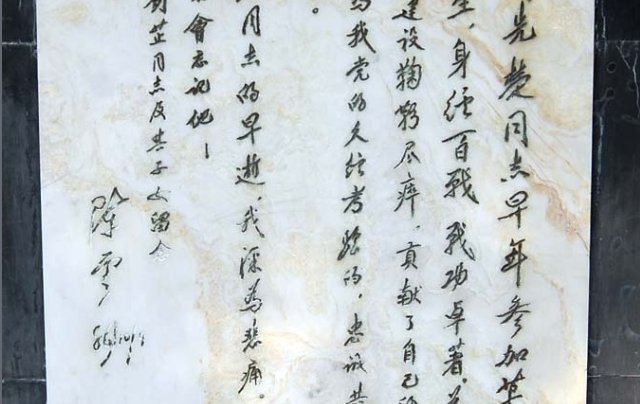 先楚同志早年参加革
生，身经百战，战功卓著。为
建设鞠躬尽瘁，贡献了自己
为我党的久经考验的，忠诚共
。
同志的早逝，我深为悲痛。
會忘记他！
芷同志及其子女留念
陈云